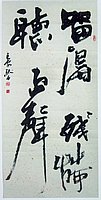 留得残荷
聽雨聲